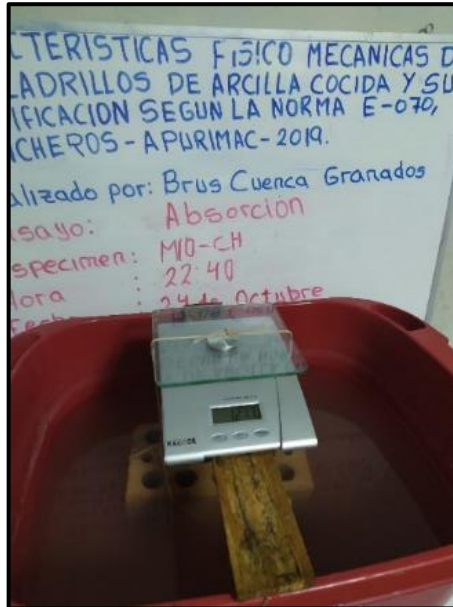 CTERISTICAS FISICO MECANICAS D
LADRILLOS DE ARCILLA COCIDA Y SU
IFICACION SEGUN LA NORMA E-070,
NCHEROS-APURIMAC-2019.
alizado por: Brus Cuenca Granados
nsayo: Absorción
specimen: M10-CH
Hora : 22:40
Fecha : 24 de Octubre